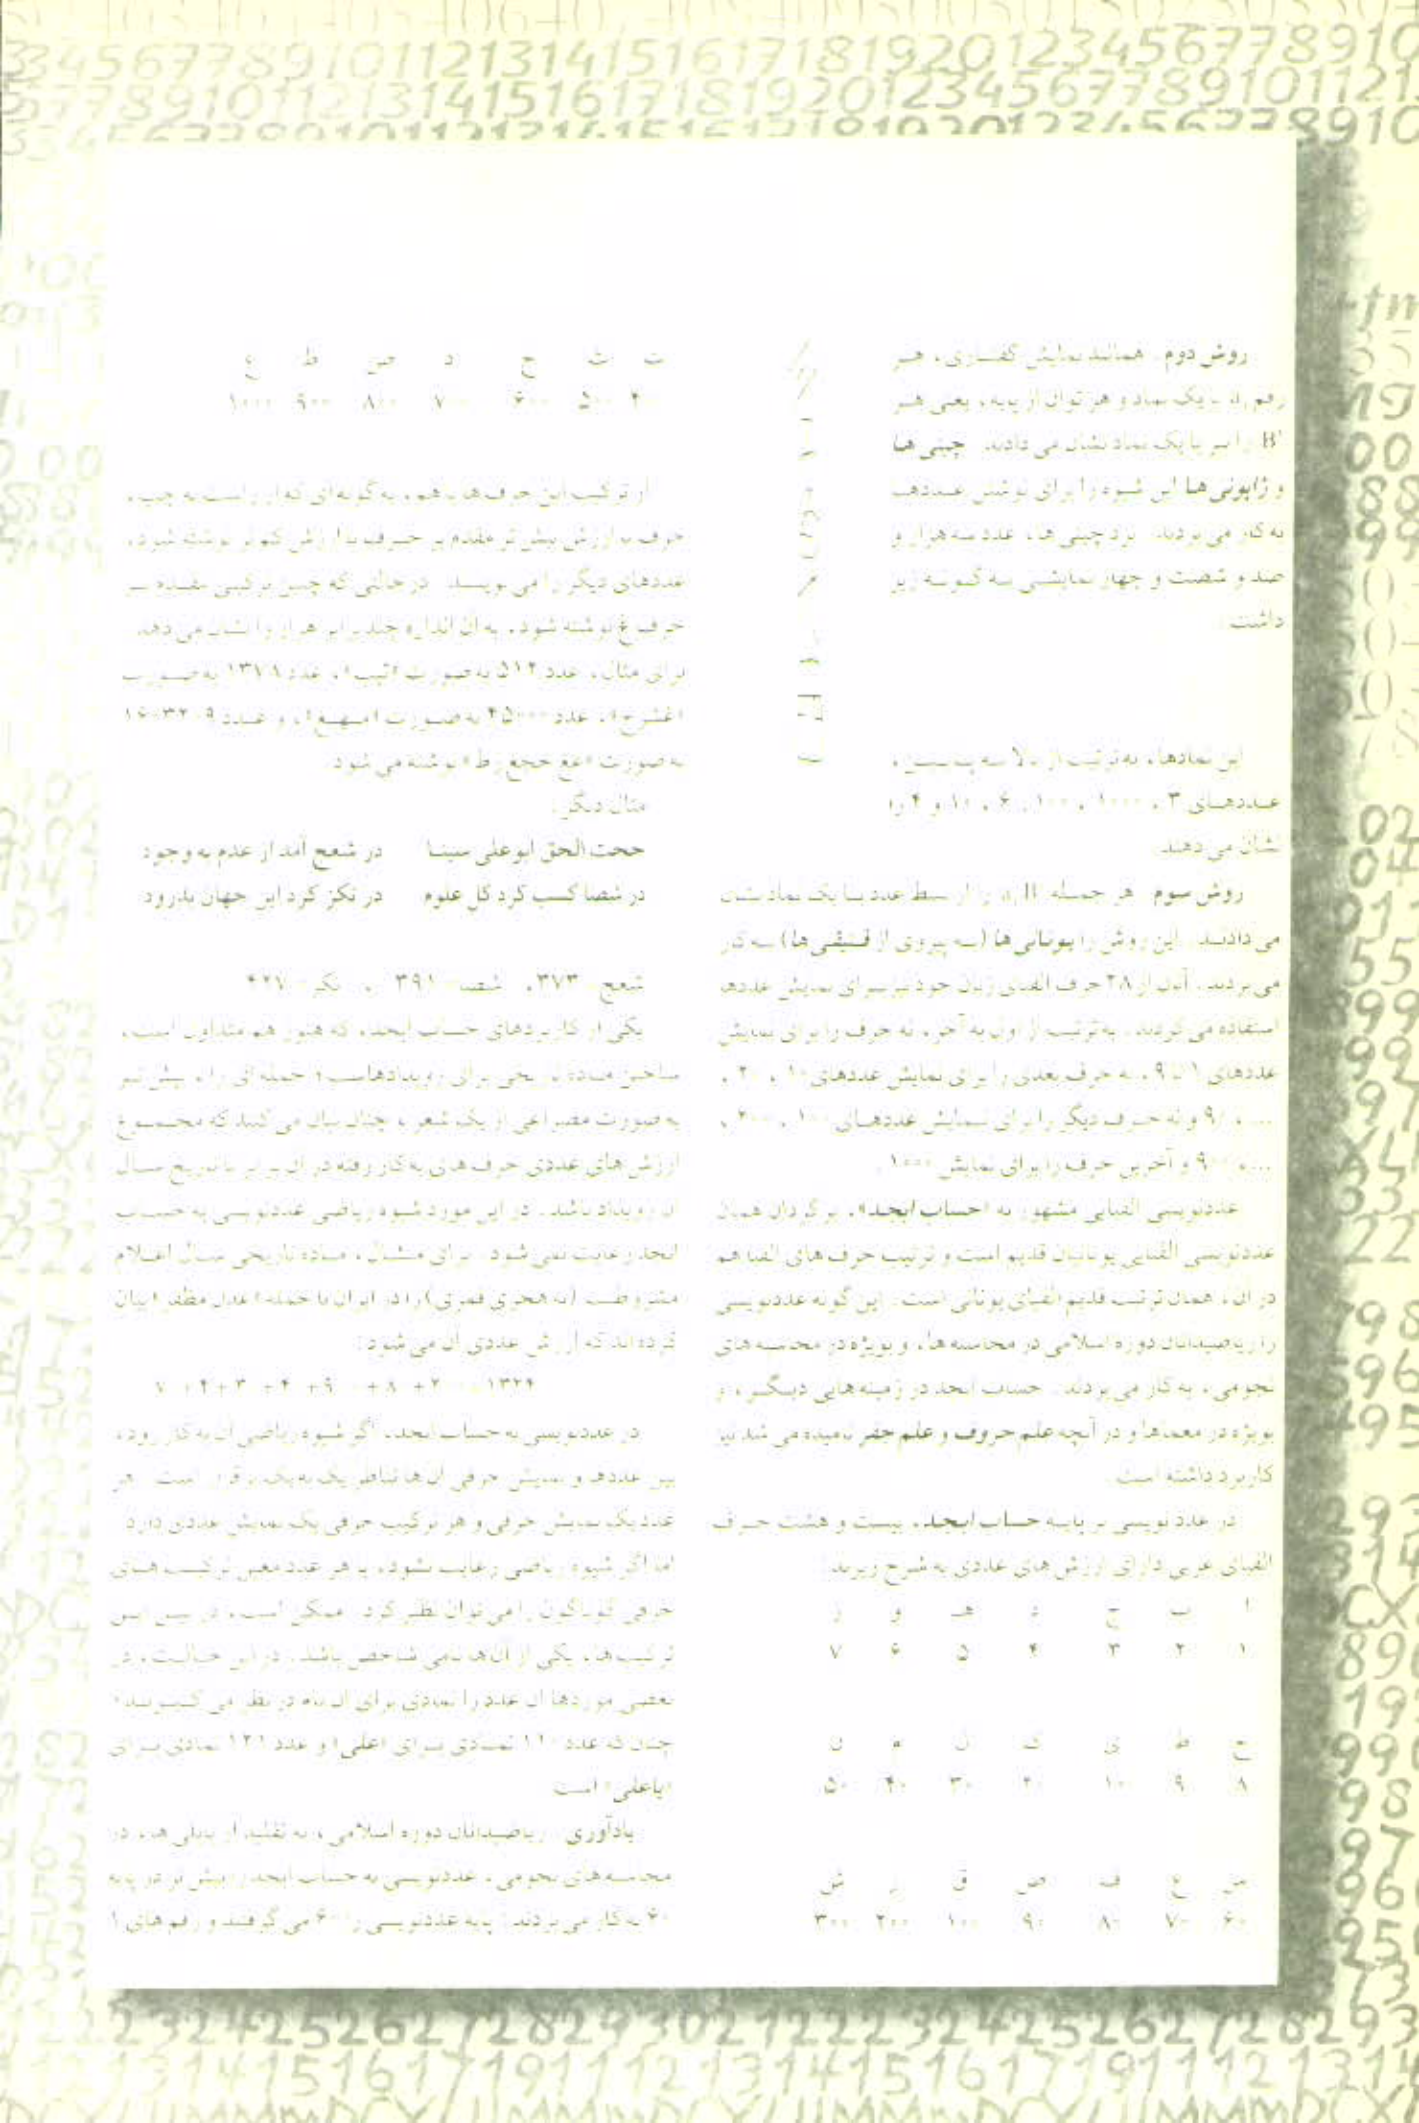 روش دوم. همانند نمایش گفتاری، هر
رقم aᵢ با یک نماد و هر توان از پایه، یعنی هر
Bⁱ را نیز با یک نماد نشان می دادند. چینی ها
و ژاپونی ها این شیوه را برای نوشتن عددها
به کار می بردند. نزد چینی ها، عدد سه هزار و
صد و شصت و چهار نمایشی به گونه زیر
داشت:
این نمادها، به ترتیب از بالا به پایین،
عددهای ۳، ۱۰۰۰، ۱۰۰، ۶، ۱۰ و ۴ را
نشان می دهند.
روش سوم. هر جمله aᵢBⁱ را از بسط عدد با یک نماد نشان
می دادند. این روش را یونانی ها (به پیروی از فنیقی ها) به کار
می بردند. آنان از ۲۸ حرف الفبای زبان خود نیز برای نمایش عددها
استفاده می کردند. به ترتیب از اول به آخر، نه حرف را برای نمایش
عددهای ۱ تا ۹، نه حرف بعدی را برای نمایش عددهای ۱۰، ۲۰،
...، ۹۰ و نه حرف دیگر را برای نمایش عددهای ۱۰۰، ۲۰۰،
...، ۹۰۰ و آخرین حرف را برای نمایش ۱۰۰۰.
عددنویسی الفبایی مشهور به «حساب ابجد»، برگردان همان
عددنویسی الفبایی یونانیان قدیم است و ترتیب حرف های الفبا هم
در آن، همان ترتیب قدیم الفبای یونانی است. این گونه عددنویسی
را ریاضیدانان دوره اسلامی در محاسبه ها، و بویژه در محاسبه های
نجومی، به کار می بردند. حساب ابجد در زمینه هایی دیگر، و
بویژه در معماها و در آنچه علم حروف و علم جفر نامیده می شد نیز
کاربرد داشته است.
در عددنویسی بر پایه حساب ابجد، بیست و هشت حرف
الفبای عربی دارای ارزش های عددی به شرح زیرند:
ا ب ج د هـ و ز
۱ ۲ ۳ ۴ ۵ ۶ ۷
ح ط ی ک ل م ن
۸ ۹ ۱۰ ۲۰ ۳۰ ۴۰ ۵۰
س ع ف ص ق ر ش
۶۰ ۷۰ ۸۰ ۹۰ ۱۰۰ ۲۰۰ ۳۰۰
ت ث خ ذ ض ظ غ
۴۰۰ ۵۰۰ ۶۰۰ ۷۰۰ ۸۰۰ ۹۰۰ ۱۰۰۰
از ترکیب این حرف ها با هم، به گونه ای که از راست به چپ،
حرف با ارزش بیش تر مقدم بر حرف با ارزش کم تر نوشته شود،
عددهای دیگر را می نویسند. در حالتی که چنین ترکیبی مقدم بر
حرف غ نوشته شود، به آن اندازه چند برابر هزار را نشان می دهد.
برای مثال، عدد ۵۱۲ به صورت «ثیب»، عدد ۱۳۷۸ به صورت
«غشعح»، عدد ۴۵۰۰۰ به صورت «مهغ»، و عدد
به صورت نوشته می شود.
مثال دیگر:
حجت الحق ابوعلی سینا در شجع آمد از عدم به وجود
در شصا کسب کرد کل علوم در تکز کرد این جهان بدرود
۳۷۳، شصا=۳۹۱ و تکز=۴۲۷
یکی از کاربردهای حساب ابجد، که هنوز هم متداول است،
ساختن ماده تاریخی برای رویدادهاست؛ جمله ای را، بیش تر
به صورت مصراعی از یک شعر، چنان بیان می کنند که مجموع
ارزش های عددی حرف های به کار رفته در آن برابر با تاریخ سال
آن رویداد باشد. در این مورد شیوه ریاضی عددنویسی به حساب
ابجد رعایت نمی شود. برای مثال، ماده تاریخی سال اعلام
مشروطیت (به هجری قمری) را در ایران با جمله «عدل مظفر» بیان
کرده اند که ارزش عددی آن می شود:
۱۳۲۴
در عددنویسی به حساب ابجد، اگر شیوه ریاضی آن به کار رود،
بین عددها و نمایش حرفی آن ها تناظر یک به یک برقرار است. هر
عدد یک نمایش حرفی و هر ترکیب حرفی یک نمایش عددی دارد.
اما اگر شیوه ریاضی رعایت نشود، با هر عدد معین ترکیب های
حرفی گوناگون را می توان نظیر کرد. ممکن است، در بین این
ترکیب ها، یکی از آن ها نامی شاخص باشد. در این حالت، در
بعضی موردها آن عدد را نمادی برای آن نام در نظر می
چنان که عدد ۱۱۰ نمادی برای «علی» و عدد ۱۲۱ نمادی برای
«یاعلی» است.
یادآوری. ریاضیدانان دوره اسلامی، به تقلید از بابلی ها، در
محاسبه های نجومی، عددنویسی به حساب ابجد را بیش تر در پایه
۶۰ به کار می بردند: پایه عددنویسی را ۶۰ می گرفتند و رقم های ۱